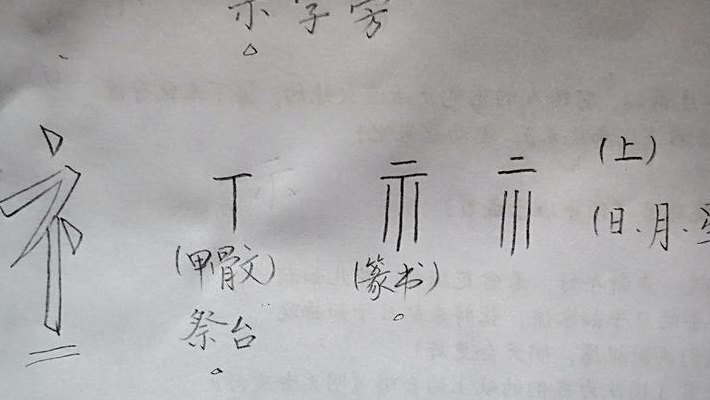 示字旁。
礻 丅 示 二 (上)
川 (日、月、星
(甲骨文) (篆书)。
祭台。